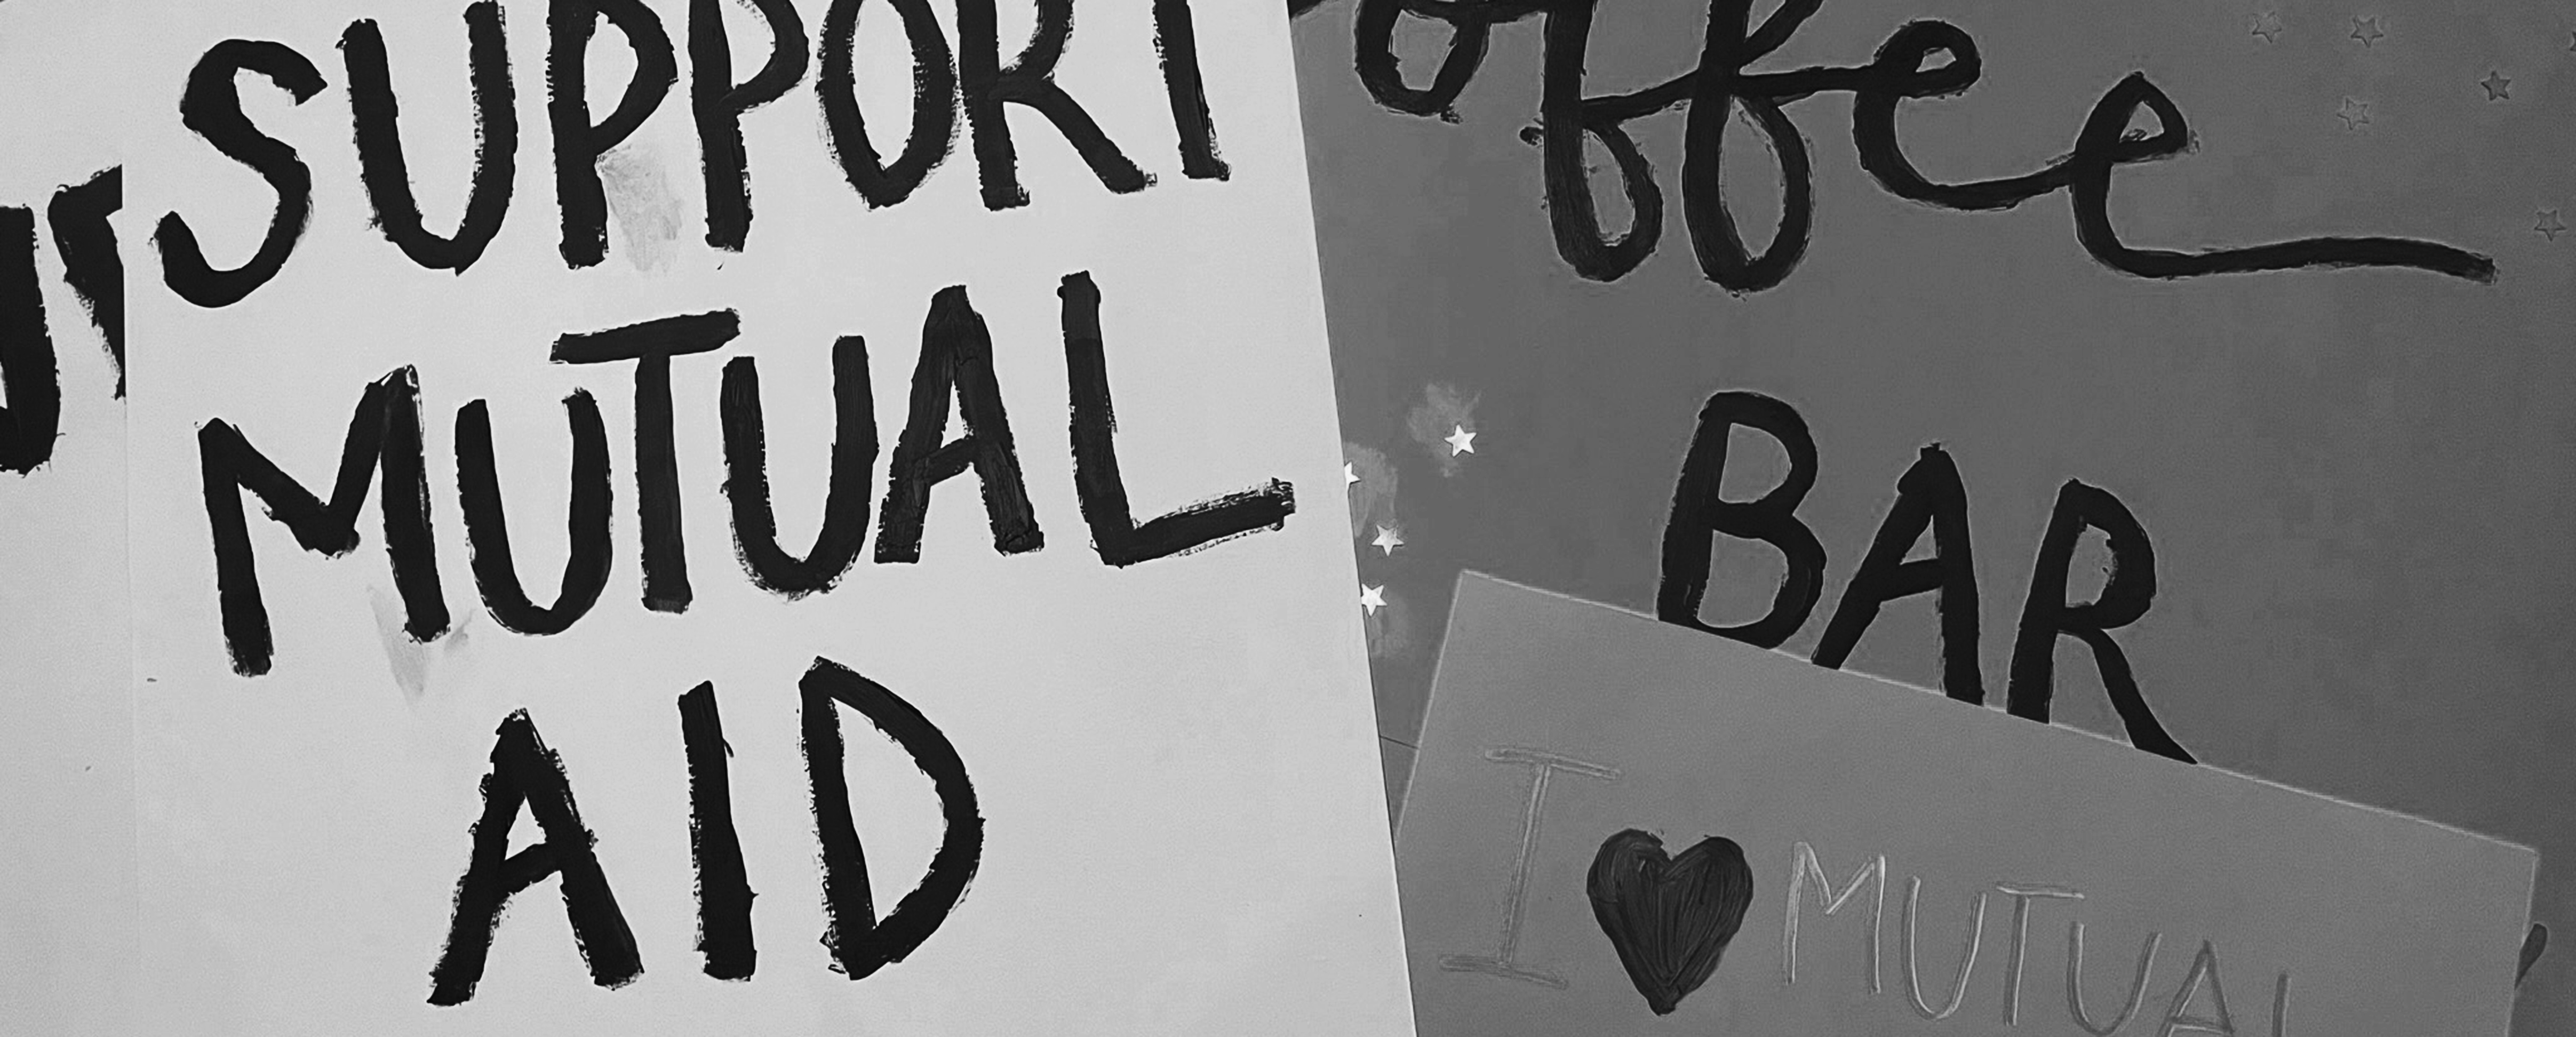 SUPPORT
MUTUAL
AID
offee
BAR
I ♥ MUTUAL